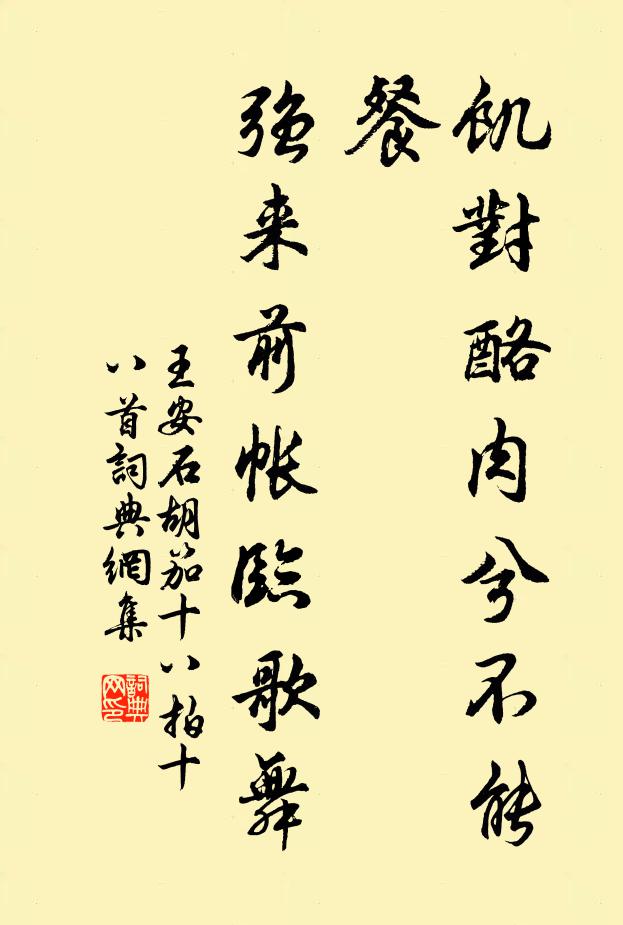 飢對酪肉兮不能
餐
強来前帐臨歌舞
王安石胡笳十八拍十
八首詞典網集
詞典
网印